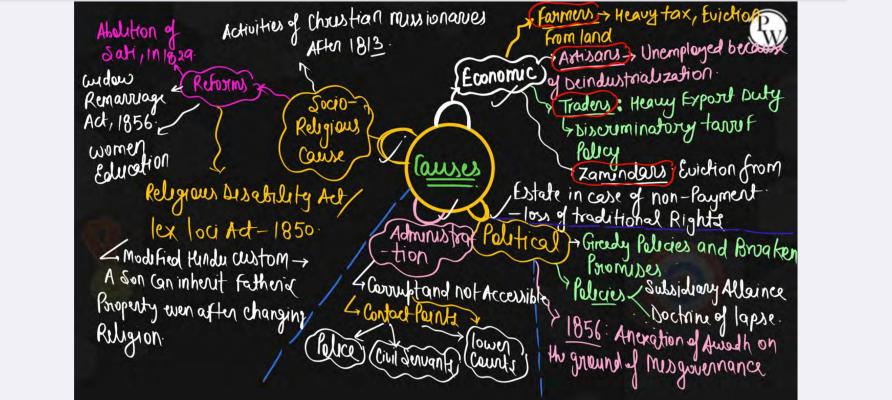 Abolition of
Sati, in 1829
Activities of Christian missionaries
After 1813
Reforms
widow
Remarriage
Act, 1856
women
Education
Socio-
Religious
Cause
Religious Disability Act/
lex loci Act-1850
Modified Hindu custom →
A Son Can inherit Father's
Property even after changing
Religion
Causes
Economic
Farmers → Heavy tax, Eviction
From land
Artisans → Unemployed because
of Deindustrialization.
Traders: Heavy Export Duty
Discriminatory tarref
Policy
Zamindars: Eviction from
Estate in case of non-Payment
- loss of traditional Rights
Administra
-tion
Corrupt and not Accessible
Contact Points
Police
Civil Servants
lower
Courts
Political
Greedy Policies and Broaken
Promises
Policies
Subsidiary Allaince
Doctrine of lapse.
1856: Anexation of Awadh on
the ground of Misgovernance
PW